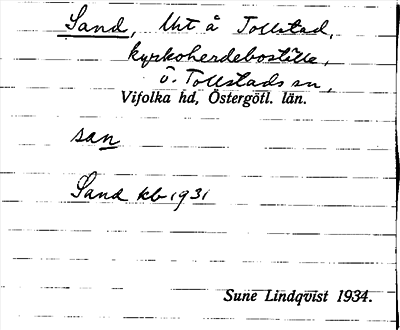 Sand, Uht å Tollstad,
kyrkoherdeboställe,
ö. Tollstads sn,
Vifolka hd, Östergötl. län.
san
Sand kb 1931
Sune Lindqvist 1934.